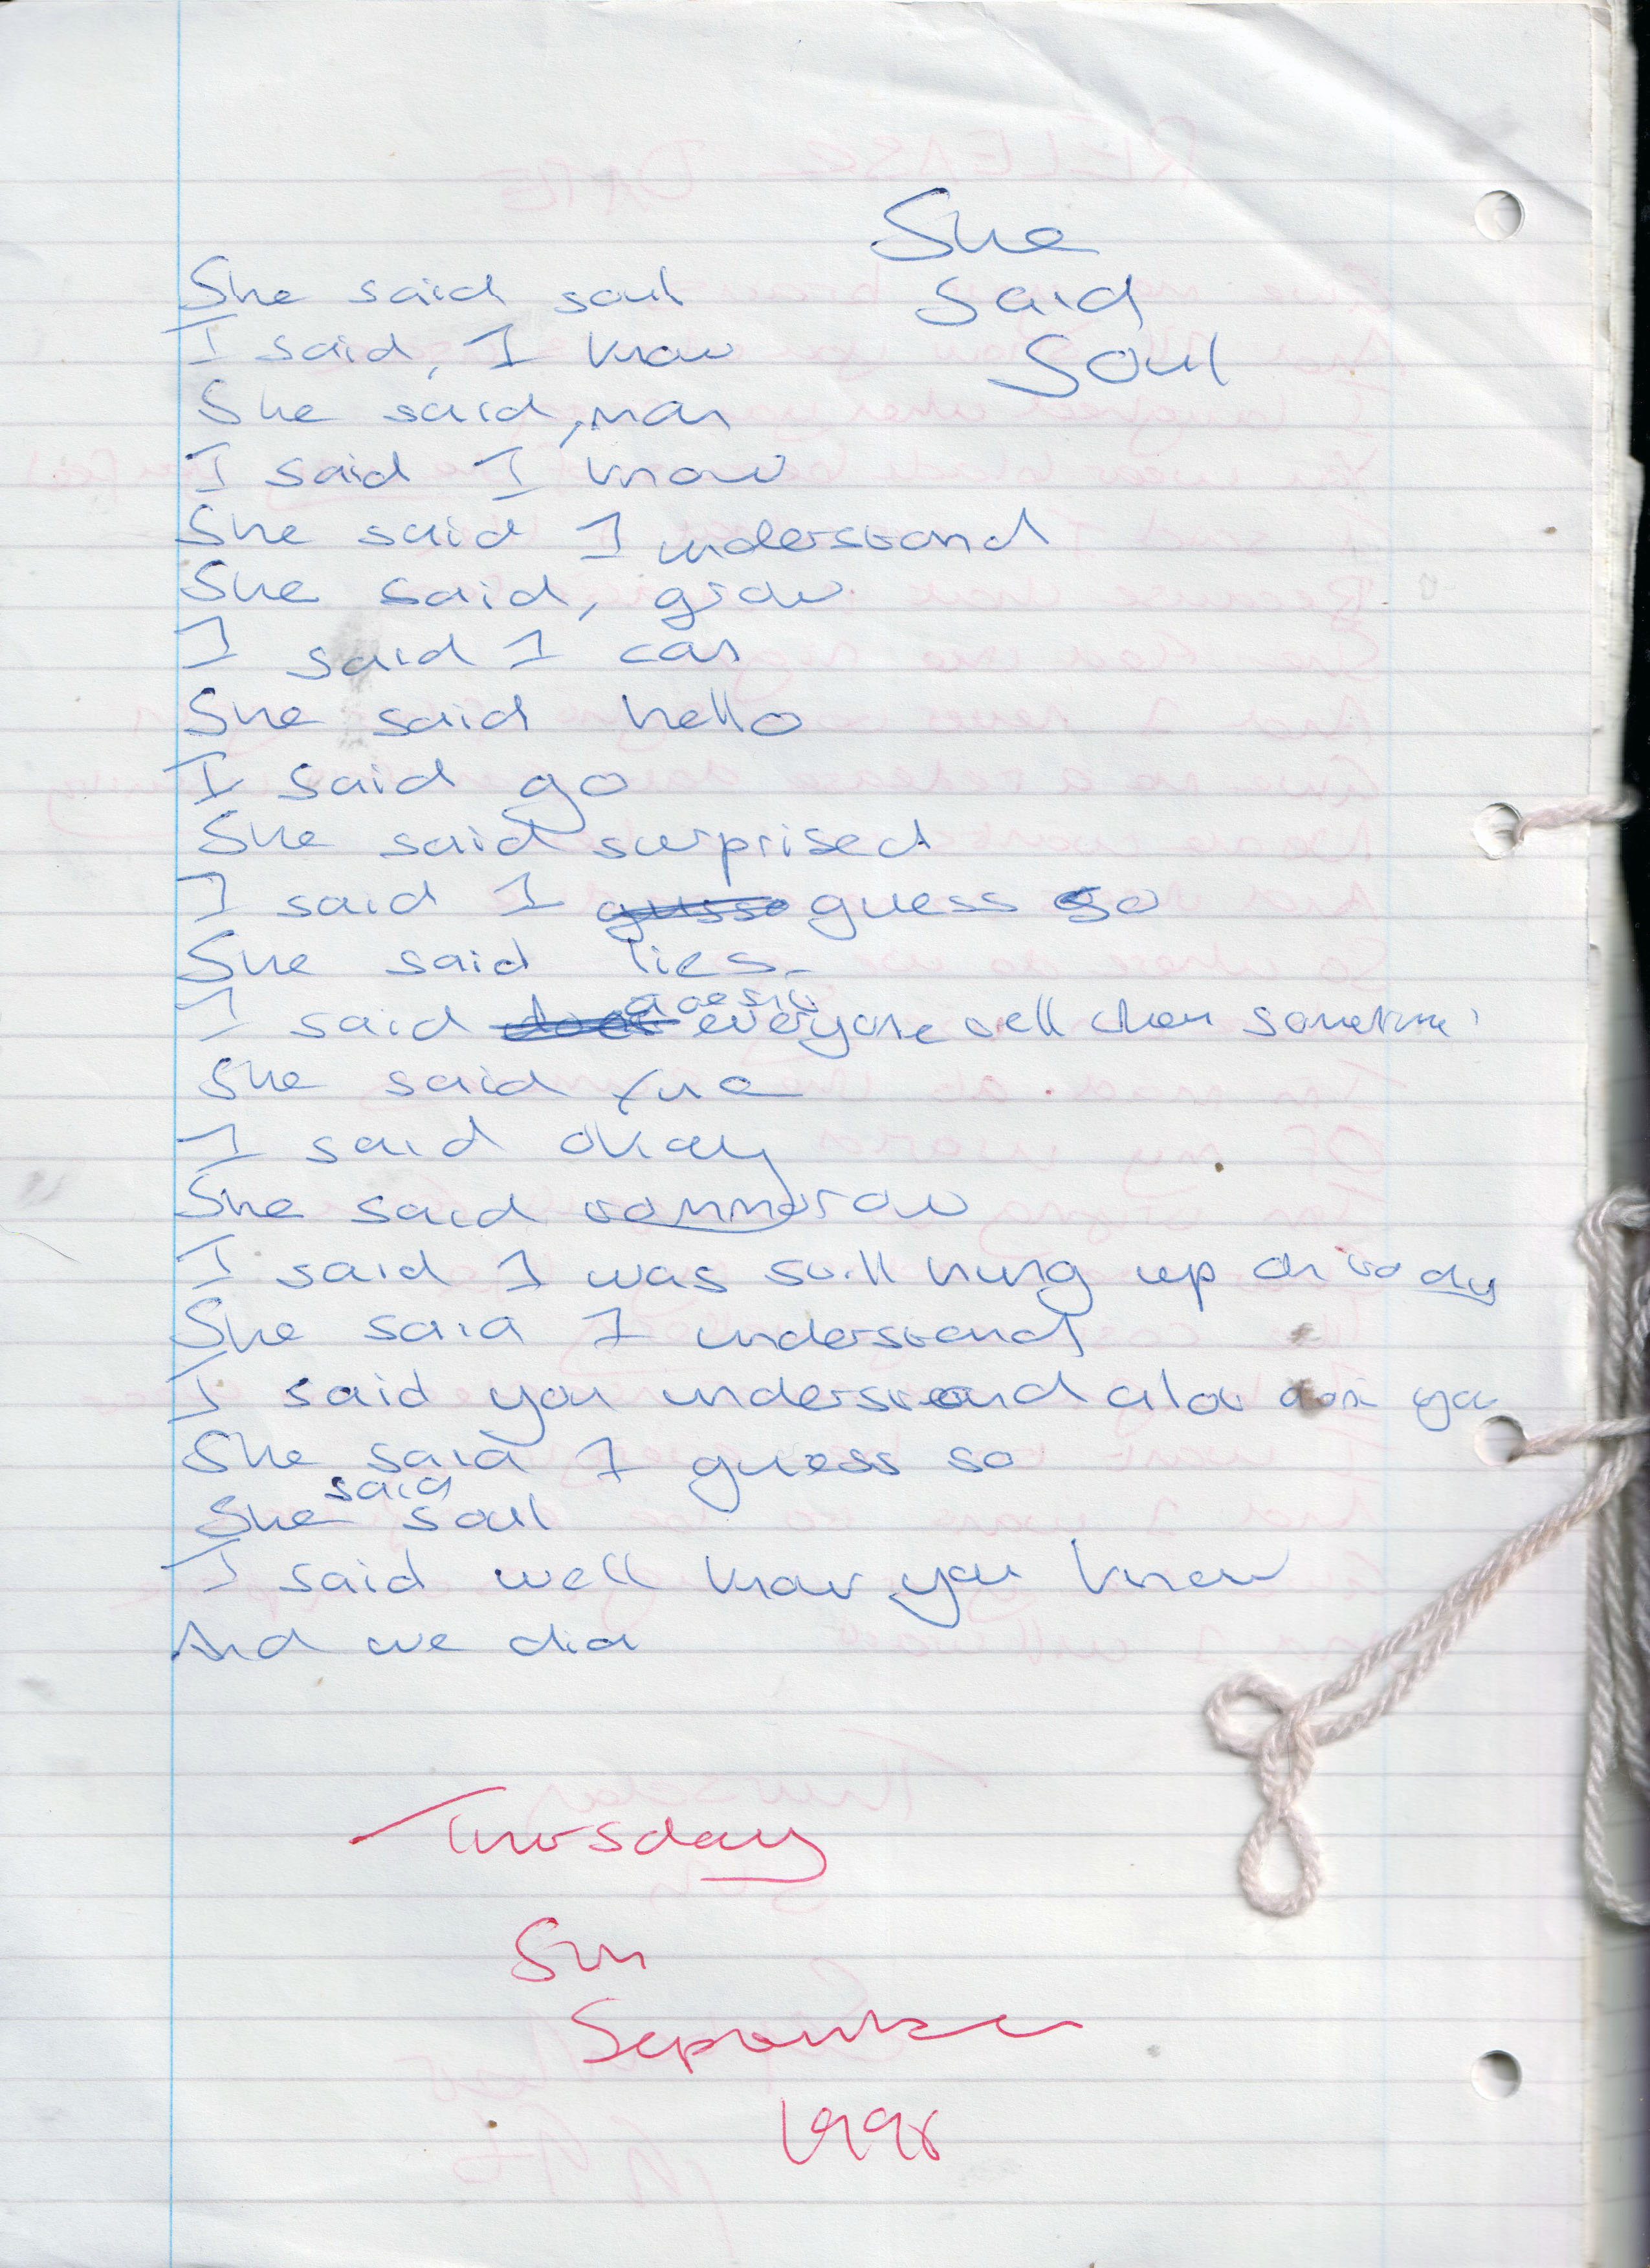 She
Said
Soul
She said soul
I said, I know
She said, man
I said I know
She said I understand
She said, grow
I said I can
She said hello
I said go
She said surprised
I said I guess so
She said lies
I said doesn't everyone tell them sometime
She said
I said okay
She said tommorow
I said I was still hung up on today
She said I understand
I said you understand alot don't you
She said I guess so
She said soul
I said well know you know
And we did
Thursday
5th
September
1996